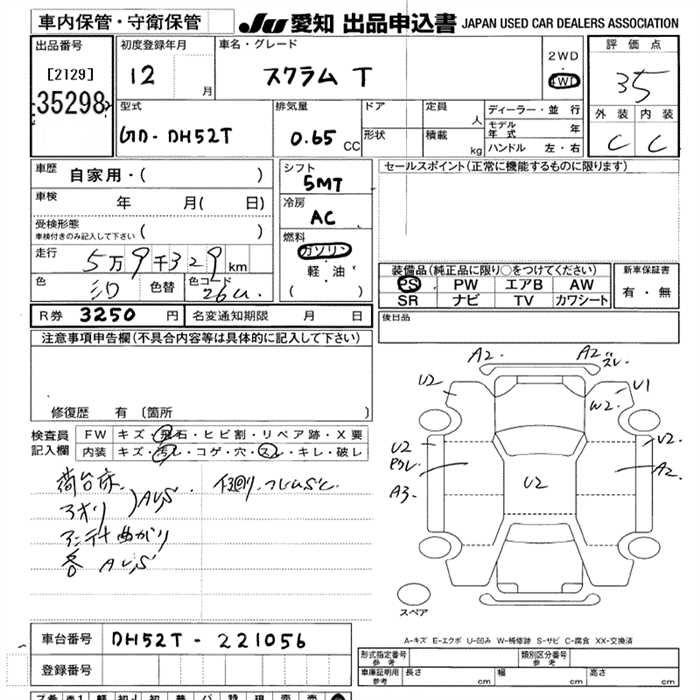 車内保管・守衛保管 JU 愛知 出品申込書 JAPAN USED CAR DEALERS ASSOCIATION
出品番号 初度登録年月 車名・グレード 評価点
[2129] 12 月 スクラム T 2WD 4WD 35
35298 型式 排気量 ドア 定員 人 ディーラー・並行 外装 内装
GD-DH52T 0.65 CC 形状 積載 kg モデル年式 年 C C
ハンドル 左・右
車歴 自家用・( ) シフト セールスポイント(正常に機能するものに限ります)
5MT
車検 年 月( 日) 冷房
受検形態 AC
車検付きのみ記入して下さい ( ) 燃料
走行 5万9千329 km ガソリン
色 色替 色コード 26U 軽・油 装備品(純正品に限り○をつけてください) 新車保証書
( ) PS PW エアB AW 有・無
SR ナビ TV カワシート
R券 3250 円 名変通知期限 月 日 後日品
注意事項申告欄(不具合内容等は具体的に記入して下さい)
修復歴 有 (箇所 )
検査員 FW キズ・飛石・ヒビ割・リペア跡・X要
記入欄 内装 キズ・汚レ・コゲ・穴・スレ・キレ・破レ
荷台床
アオリ )AUS
アンテナ曲がり
各 AUS
A2. A2
スレ
U2 U1
W2.
U2 U2.
A3 U2 A2.
スペア
A-キズ E-エクボ U-凹み W-補修跡 S-サビ C-腐食 XX-交換済
車台番号 DH52T-221056
登録番号
形式指定番号 参考 類別区分番号 参考
車庫証明用 参考 長さ cm 幅 cm 高さ cm